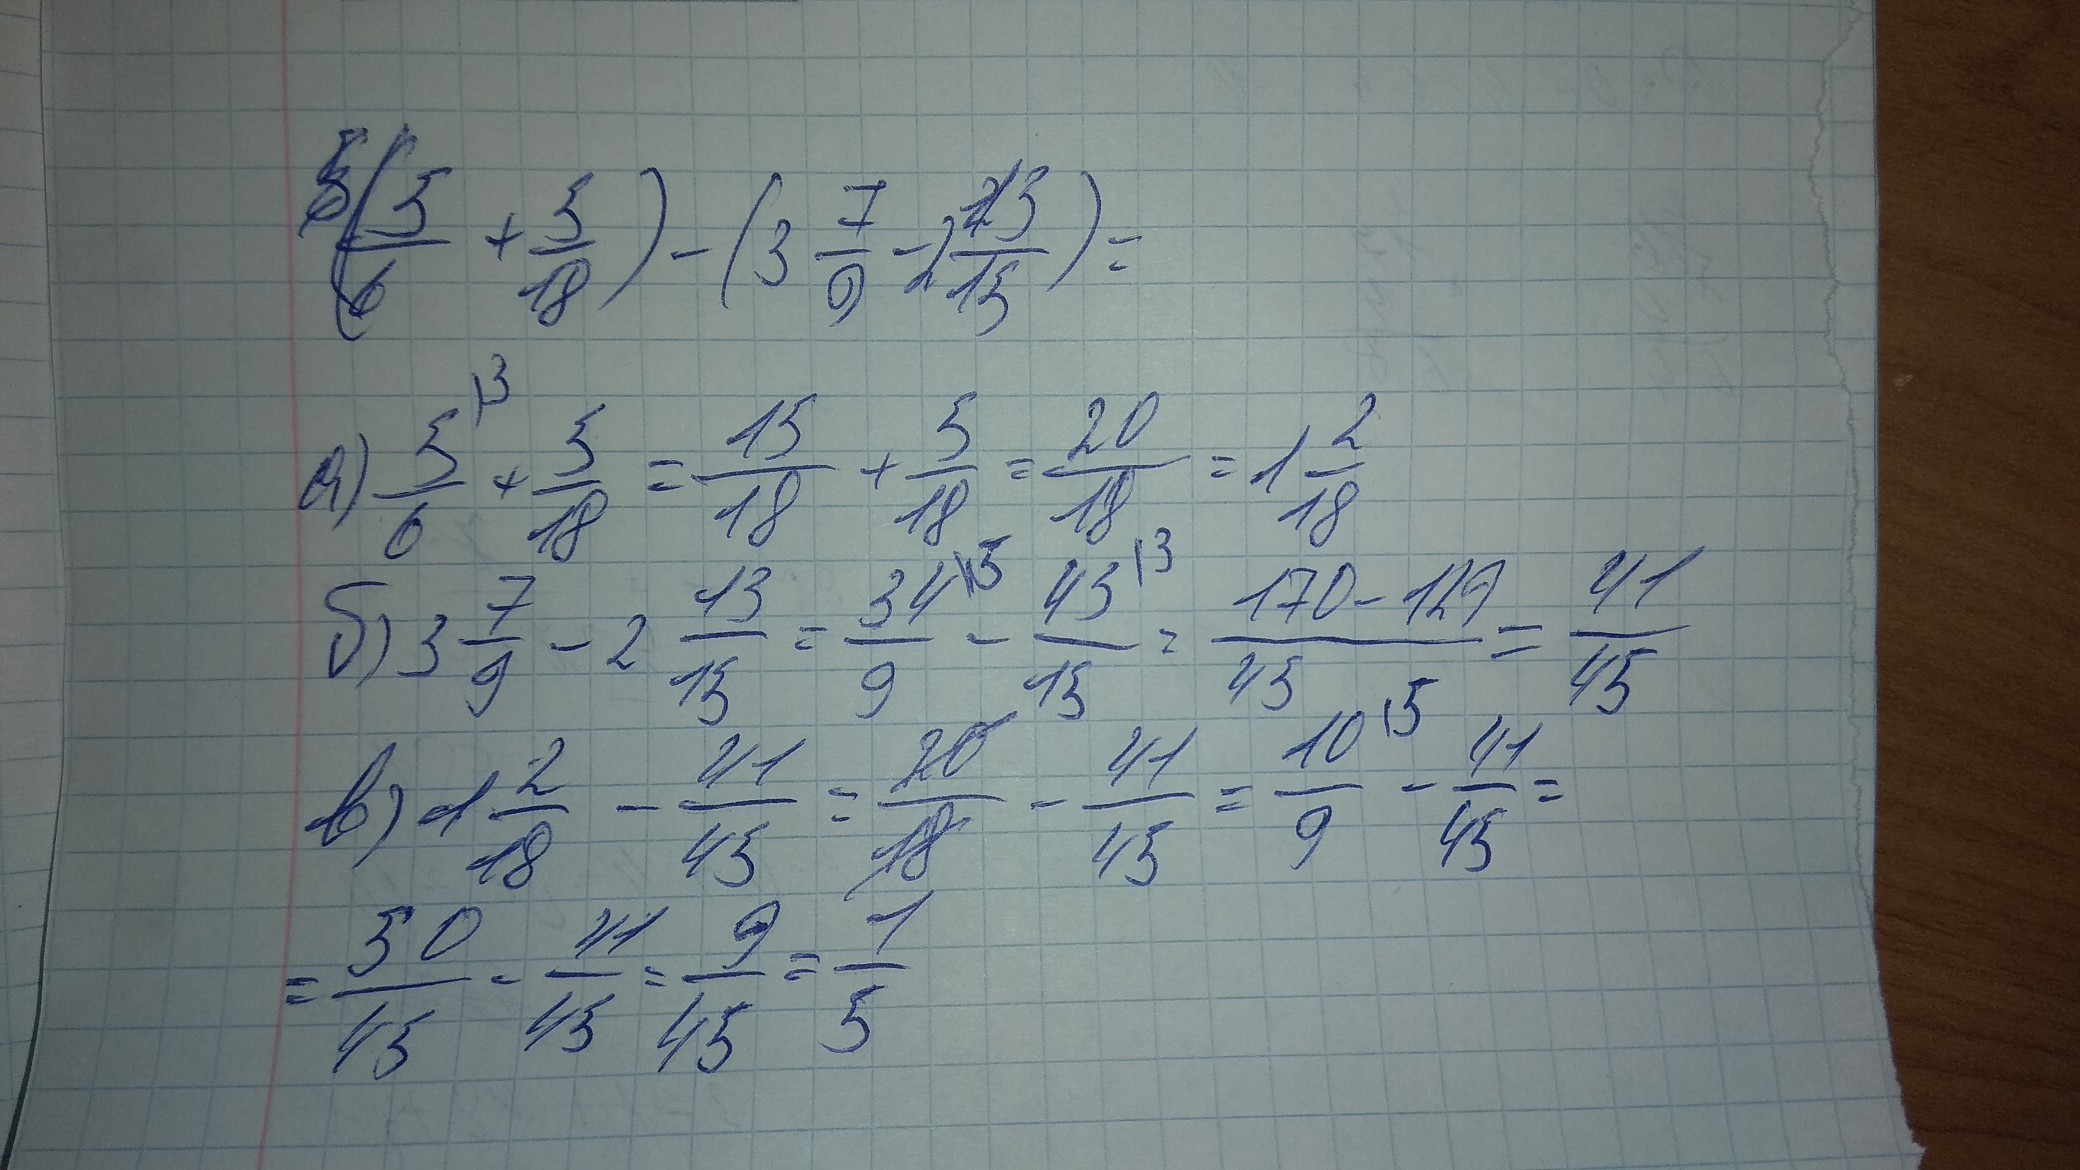 (5/6 + 5/18) - (3 7/9 - 2 13/15) =
а) 5/6 \3 + 5/18 = 15/18 + 5/18 = 20/18 = 1 2/18
б) 3 7/9 - 2 13/15 = 34/9 \5 - 43/15 \3 = 170-129/45 = 41/45
в) 1 2/18 - 41/45 = 20/18 - 41/45 = 10/9 \5 - 41/45 =
= 50/45 - 41/45 = 9/45 = 1/5